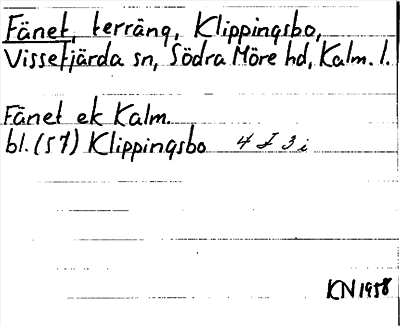 Fänet, terräng, Klippingsbo,
Vissefjärda sn, Södra Möre hd, Kalm. l.
Fänet ek Kalm.
bl. (57) Klippingsbo 4 I 3 i
KN 1958